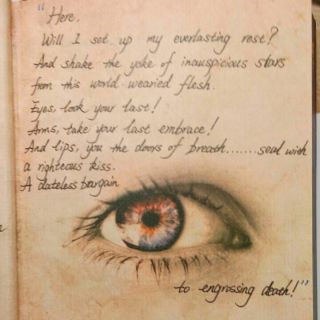 "Here.
Will I set up my everlasting rest?
And shake the yoke of inauspicious stars
from this world-wearied flesh.
Eyes, look your last!
Arms, take your last embrace!
And lips, you the doors of breath.......seal with
a righteous kiss.
A dateless bargain
to engrossing death!"